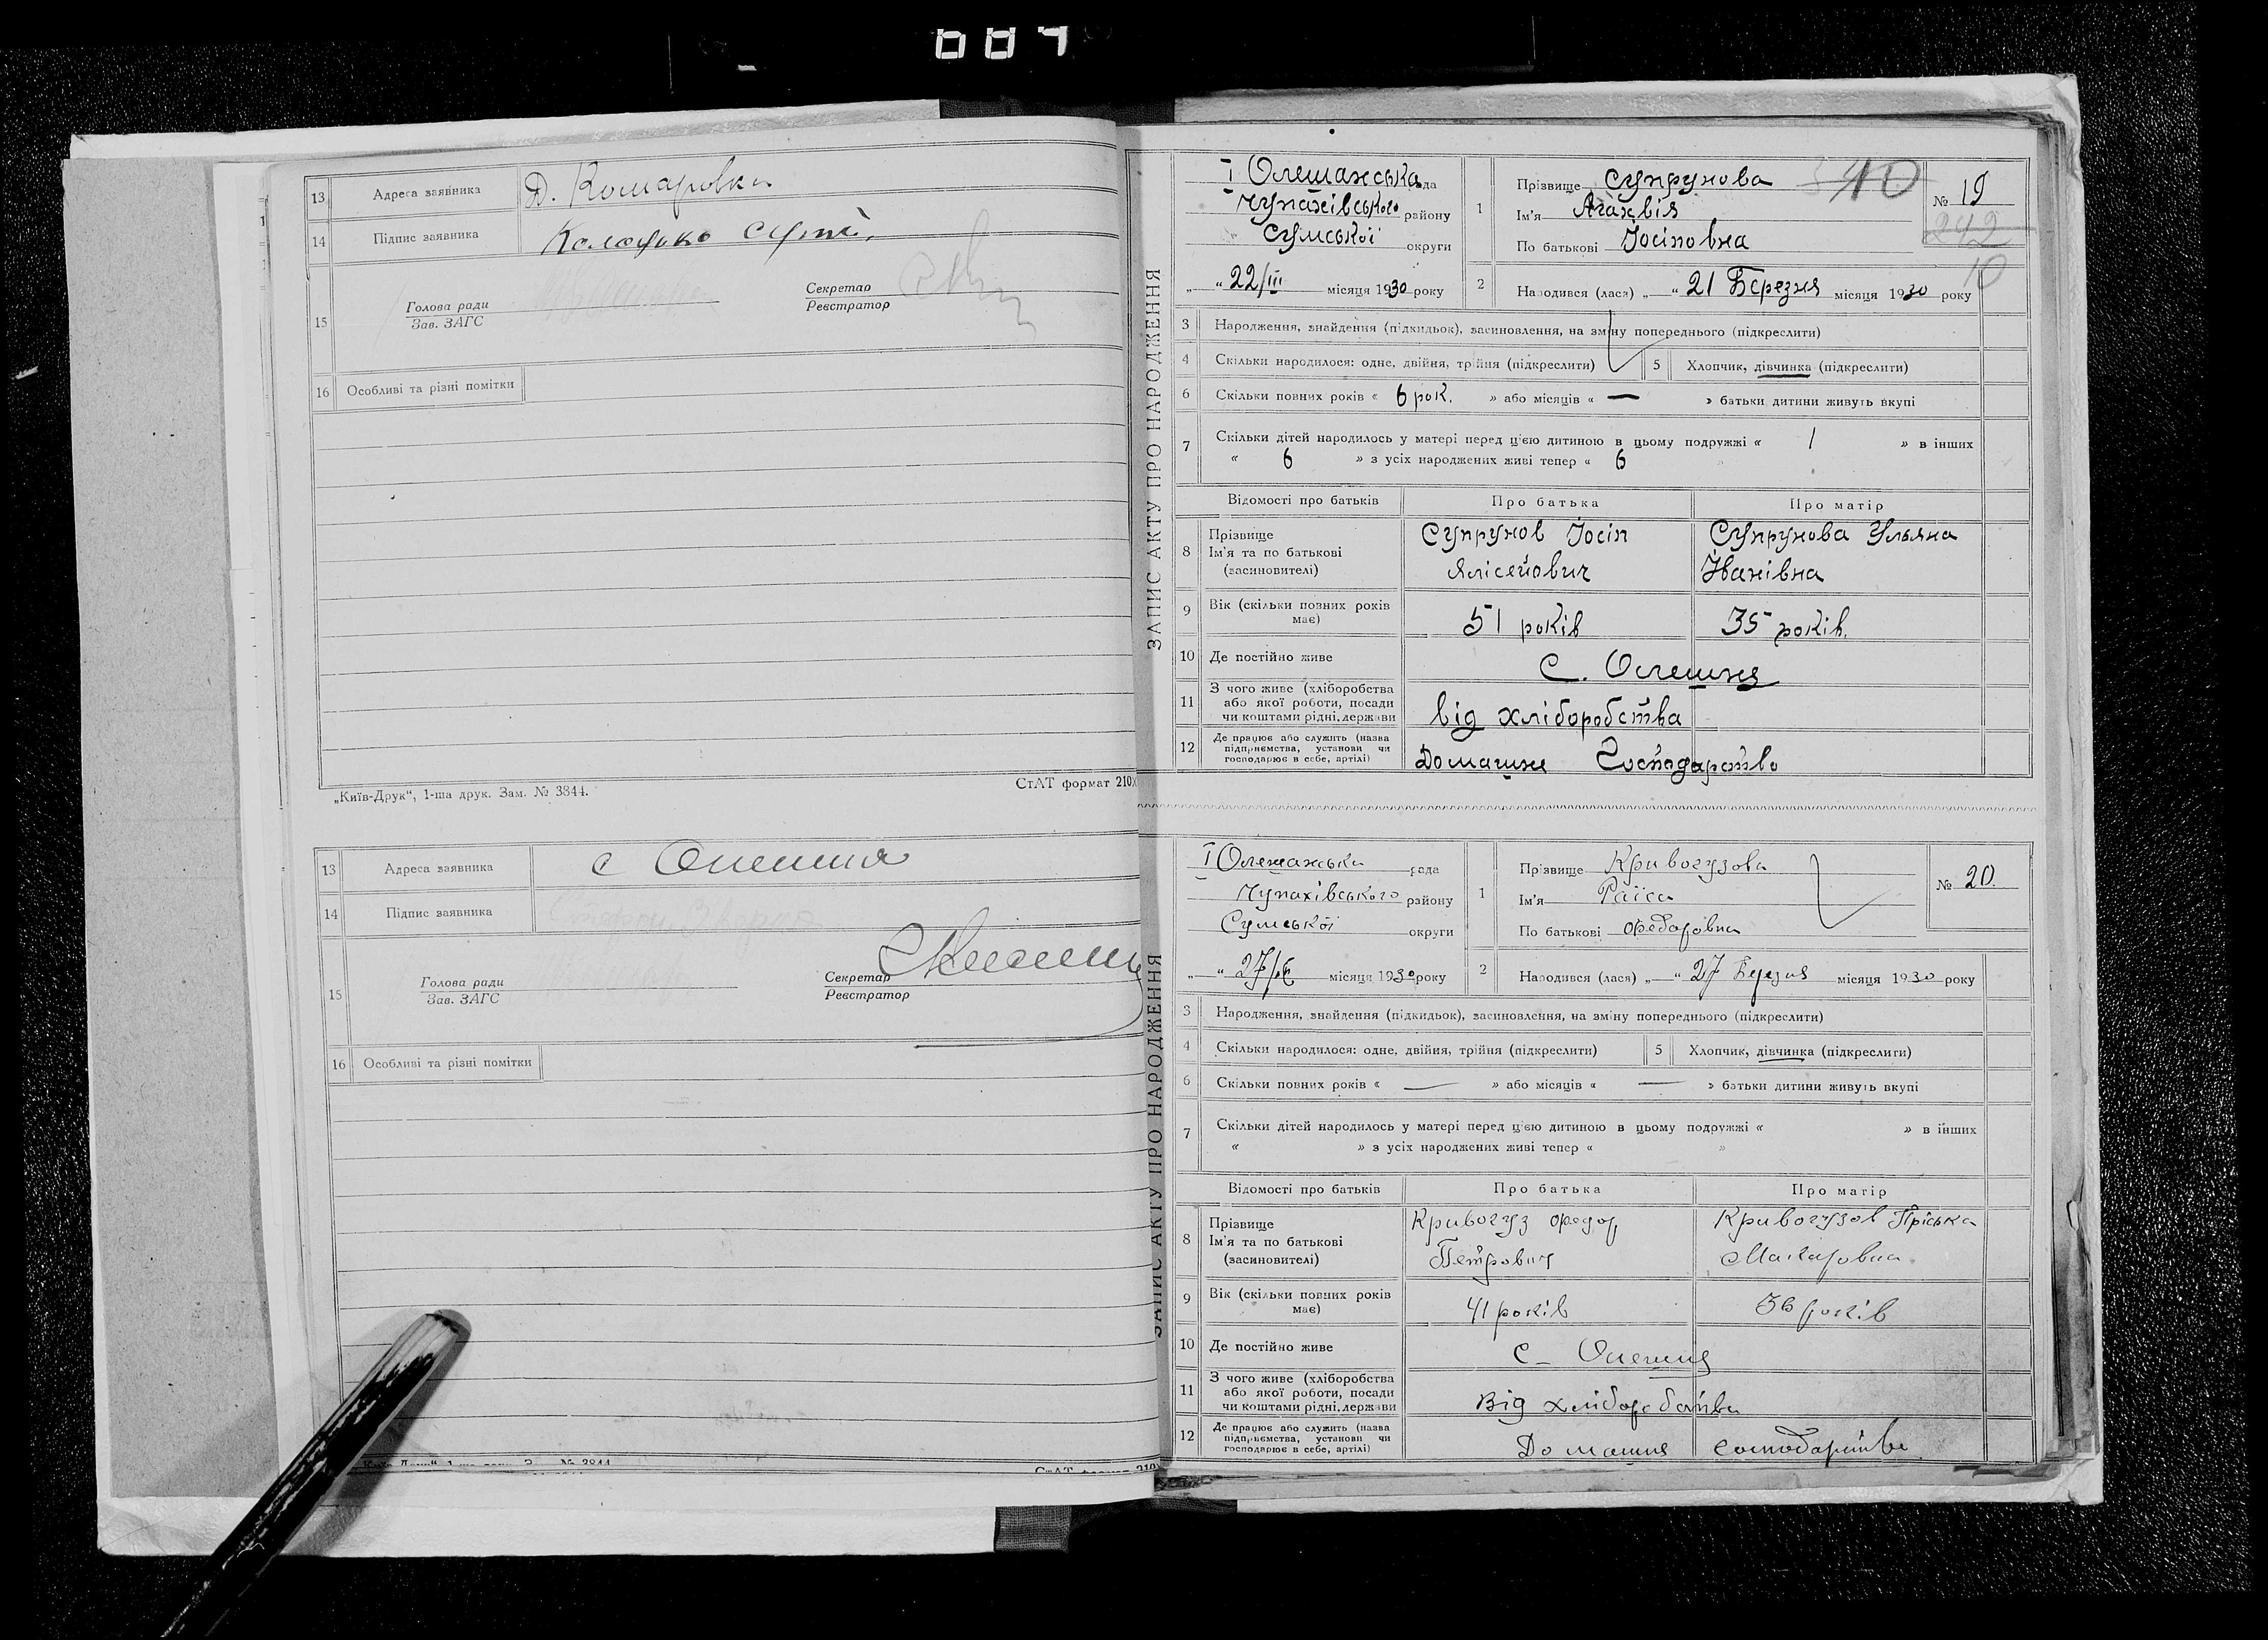 13 Адреса заявника Д. Комаровка
14 Підпис заявника
15 Голова ради Секретар
Зав. ЗАГС Реєстратор
16 Особливі та різні помітки
„Київ-Друк“, 1-ша друк. Зам. № 3844. СтАТ формат 210
13 Адреса заявника с Олешня
14 Підпис заявника
15 Голова ради Секретар
Зав. ЗАГС Реєстратор
16 Особливі та різні помітки
ЗАПИС АКТУ ПРО НАРОДЖЕННЯ
І Олешанська рада
Чупахівського району
Сумської округи
„ “ 22/III місяця 1930 року
1 Прізвище Супрунова
Ім'я Агахвія
По батькові Йосіповна
№ 19
242
10
2 Народився (лася) „ “ 21 Березня місяця 1930 року
3 Народження, знайдення (підкидьок), засиновлення, на зміну попереднього (підкреслити)
4 Скільки народилося: одне, двійня, трійня (підкреслити) 5 Хлопчик, дівчинка (підкреслити)
6 Скільки повних років « 6 рок. » або місяців « — » батьки дитини живуть вкупі
7 Скільки дітей народилось у матері перед цією дитиною в цьому подружжі « 1 » в інших
« 6 » з усіх народжених живі тепер « 6 »
Відомості про батьків Про батька Про матір
8 Прізвище Ім'я та по батькові (засиновителі) Супрунов Йосіп Ялісейович Супрунова Ульяна Іванівна
9 Вік (скільки повних років має) 51 років 35 років.
10 Де постійно живе С. Олешня
11 З чого живе (хліборобства або якої роботи, посади чи коштами рідні, держави від хліборобства
12 Де працює або служить (назва підприємства, установи чи господарює в себе, артілі) Домашне Господарство
ЗАПИС АКТУ ПРО НАРОДЖЕННЯ
І Олешанська рада
Чупахівського району
Сумської округи
„ “ 27/ місяця 1930 року
1 Прізвище Кривогузова
Ім'я Раїса
По батькові Федоровна
№ 20.
2 Народився (лася) „ “ 27 Березня місяця 1930 року
3 Народження, знайдення (підкидьок), засиновлення, на зміну попереднього (підкреслити)
4 Скільки народилося: одне, двійня, трійня (підкреслити) 5 Хлопчик, дівчинка (підкреслити)
6 Скільки повних років « — » або місяців « — » батьки дитини живуть вкупі
7 Скільки дітей народилось у матері перед цією дитиною в цьому подружжі « » в інших
« » з усіх народжених живі тепер « »
Відомості про батьків Про батька Про матір
8 Прізвище Ім'я та по батькові (засиновителі) Кривогуз Федор Петрович Кривогузов Пріська Макаровна
9 Вік (скільки повних років має) 41 років 36 років
10 Де постійно живе С- Олешня
11 З чого живе (хліборобства або якої роботи, посади чи коштами рідні, держави Від хліборобства
12 Де працює або служить (назва підприємства, установи чи господарює в себе, артілі) Домашня Господарство